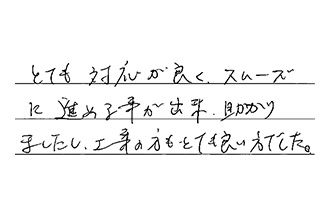 とても 対応が良く、スムーズ
に 進める事が出来、助かり
ましたし、工事の方もとても良い方でした。